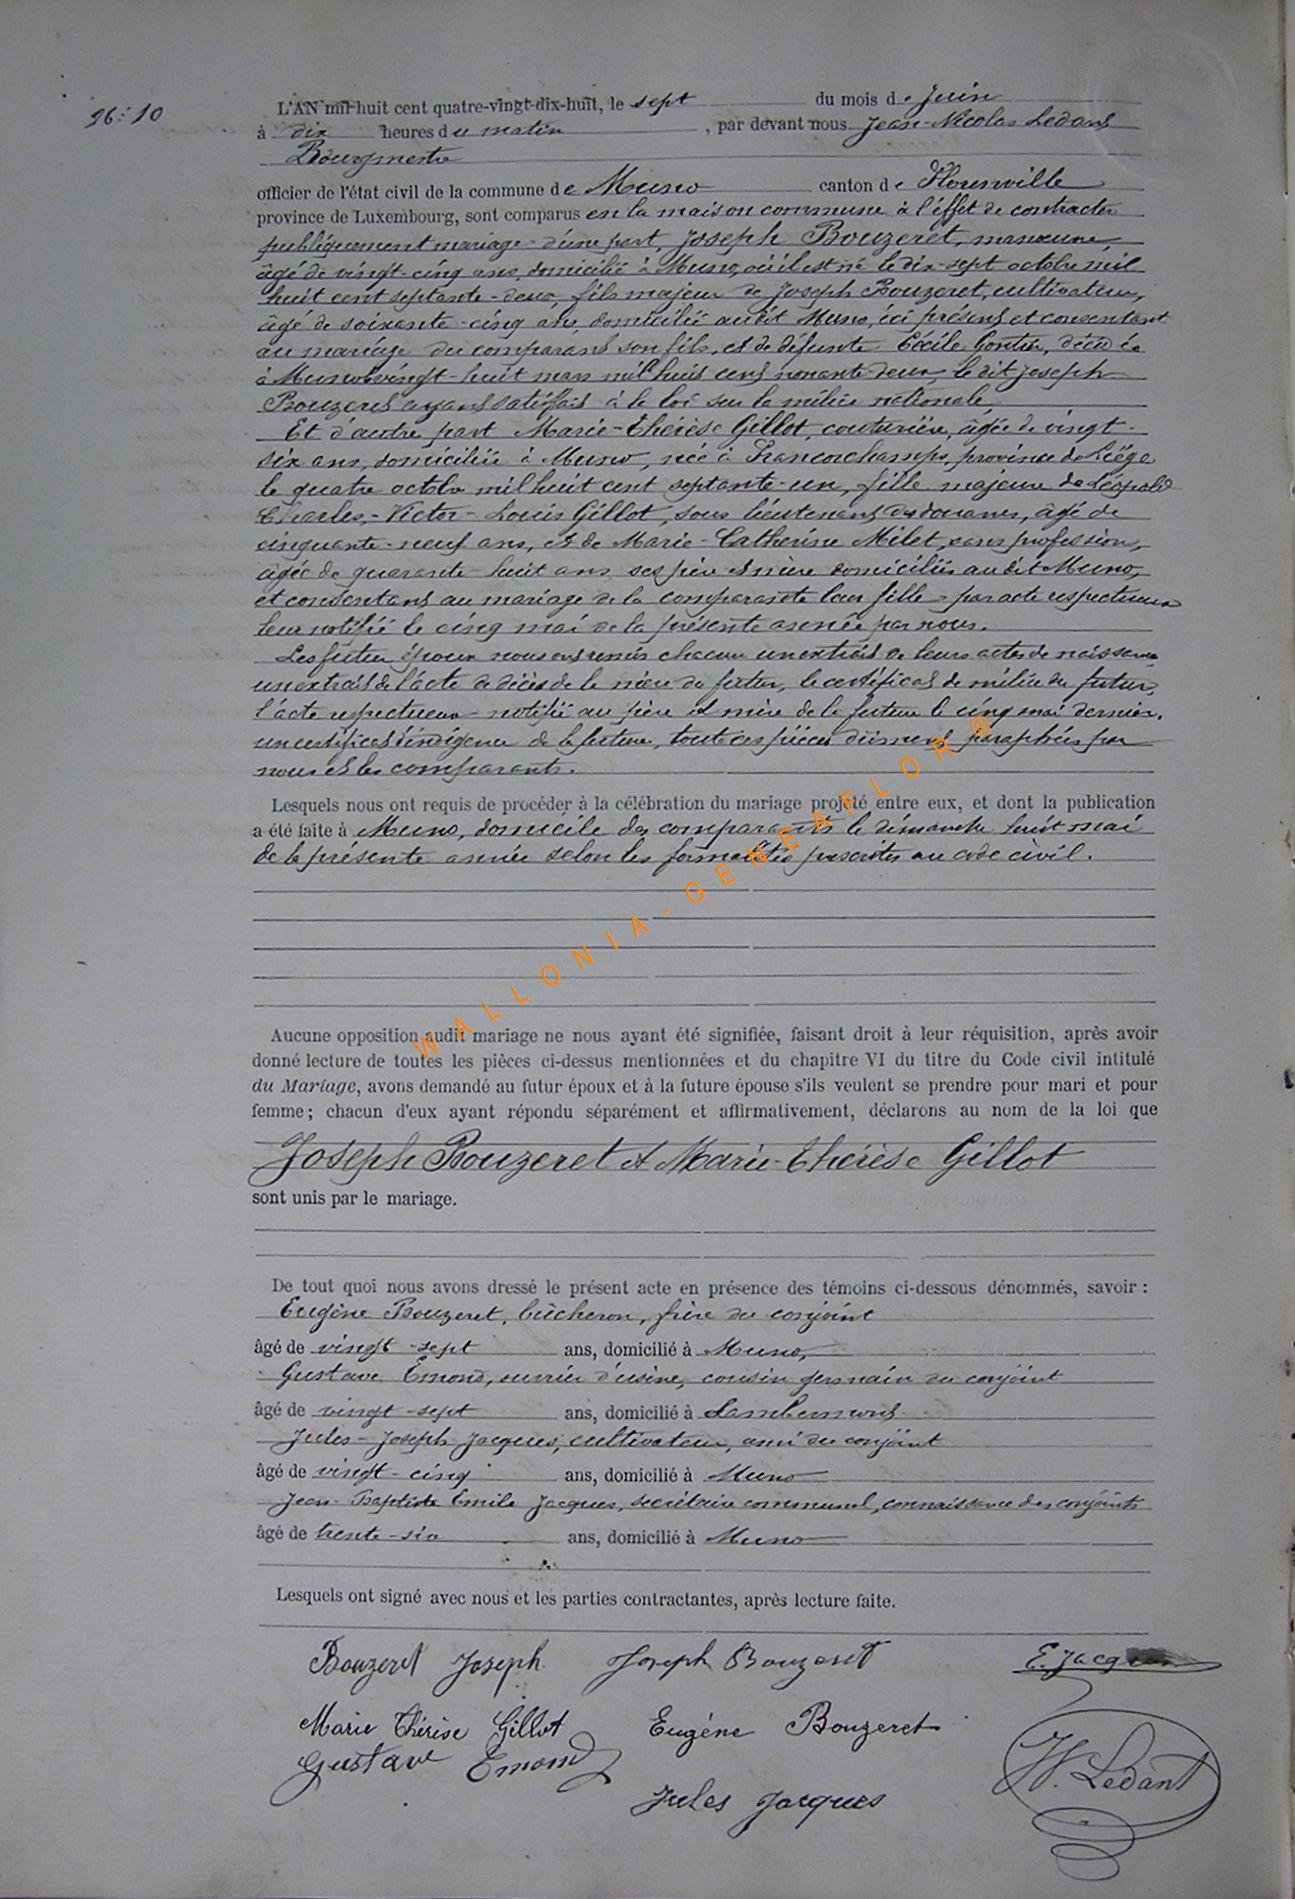 N°: 10
L'AN mil huit cent quatre-vingt-dix-huit, le sept du mois de Juin
à dix heures du matin, par devant nous Jean-Nicolas Ledant
Bourgmestre
officier de l'état civil de la commune de Muno canton de Florenville
province de Luxembourg, sont comparus en la maison commune à l'effet de contracter
publiquement mariage d'une part, Joseph Bouzeret, manœuvre,
âgé de vingt-cinq ans, domicilié à Muno, où il est né le dix-sept octobre mil
huit cent septante-deux, fils majeur de Joseph Bouzeret, cultivateur,
âgé de soixante-cinq ans, domicilié audit Muno, ici présent et consentant
au mariage du comparant son fils, et de défunte Cécile Gontier, décédée
à Muno le vingt-huit mars mil huit cent nonante-deux, le dit Joseph
Bouzeret ayant satisfait à la loi sur la milice nationale
Et d'autre part Marie-Thérèse Gillot, couturière, âgée de vingt-
six ans, domiciliée à Muno, née à Francorchamps, province de Liège
le quatre octobre mil huit cent septante-un, fille majeure de Léopold
Charles-Victor-Louis Gillot, sous lieutenant des douanes, âgé de
cinquante-neuf ans, et de Marie-Catherine Milet, sans profession,
âgée de quarante-huit ans, ses père et mère domiciliés audit Muno,
et consentant au mariage de la comparante leur fille par acte respectueux
leur notifié le cinq mai de la présente année par nous.
Les futurs époux nous ont remis chacun un extrait de leurs actes de naissance
un extrait de l'acte de décès de la mère du futur, le certificat de milice du futur,
l'acte respectueux notifié au père et mère de la future le cinq mai dernier,
un certificat d'indigence de la future, toutes ces pièces dûment paraphées par
nous et les comparants.
Lesquels nous ont requis de procéder à la célébration du mariage projeté entre eux, et dont la publication
a été faite à Muno, domicile des comparants le dimanche huit mai
de la présente année selon les formalités prescrites au code civil.
WALLONIA-GENEAFLOR®
Aucune opposition audit mariage ne nous ayant été signifiée, faisant droit à leur réquisition, après avoir
donné lecture de toutes les pièces ci-dessus mentionnées et du chapitre VI du titre du Code civil intitulé
du Mariage, avons demandé au futur époux et à la future épouse s'ils veulent se prendre pour mari et pour
femme ; chacun d'eux ayant répondu séparément et affirmativement, déclarons au nom de la loi que
Joseph Bouzeret et Marie-Thérèse Gillot
sont unis par le mariage.
De tout quoi nous avons dressé le présent acte en présence des témoins ci-dessous dénommés, savoir :
Eugène Bouzeret, bûcheron, frère du conjoint
âgé de vingt-sept ans, domicilié à Muno,
Gustave Emond, ouvrier d'usine, cousin germain du conjoint
âgé de vingt-sept ans, domicilié à Lambermont
Jules-Joseph Jacques, cultivateur, ami du conjoint
âgé de vingt-cinq ans, domicilié à Muno
Jean-Baptiste Emile Jacques, secrétaire communal, connaissance des conjoints
âgé de trente-six ans, domicilié à Muno
Lesquels ont signé avec nous et les parties contractantes, après lecture faite.
Bouzeret Joseph Joseph Bouzeret E. Jacques
Marie Thérèse Gillot Eugène Bouzeret
Gustave Emond N. Ledant
Jules Jacques